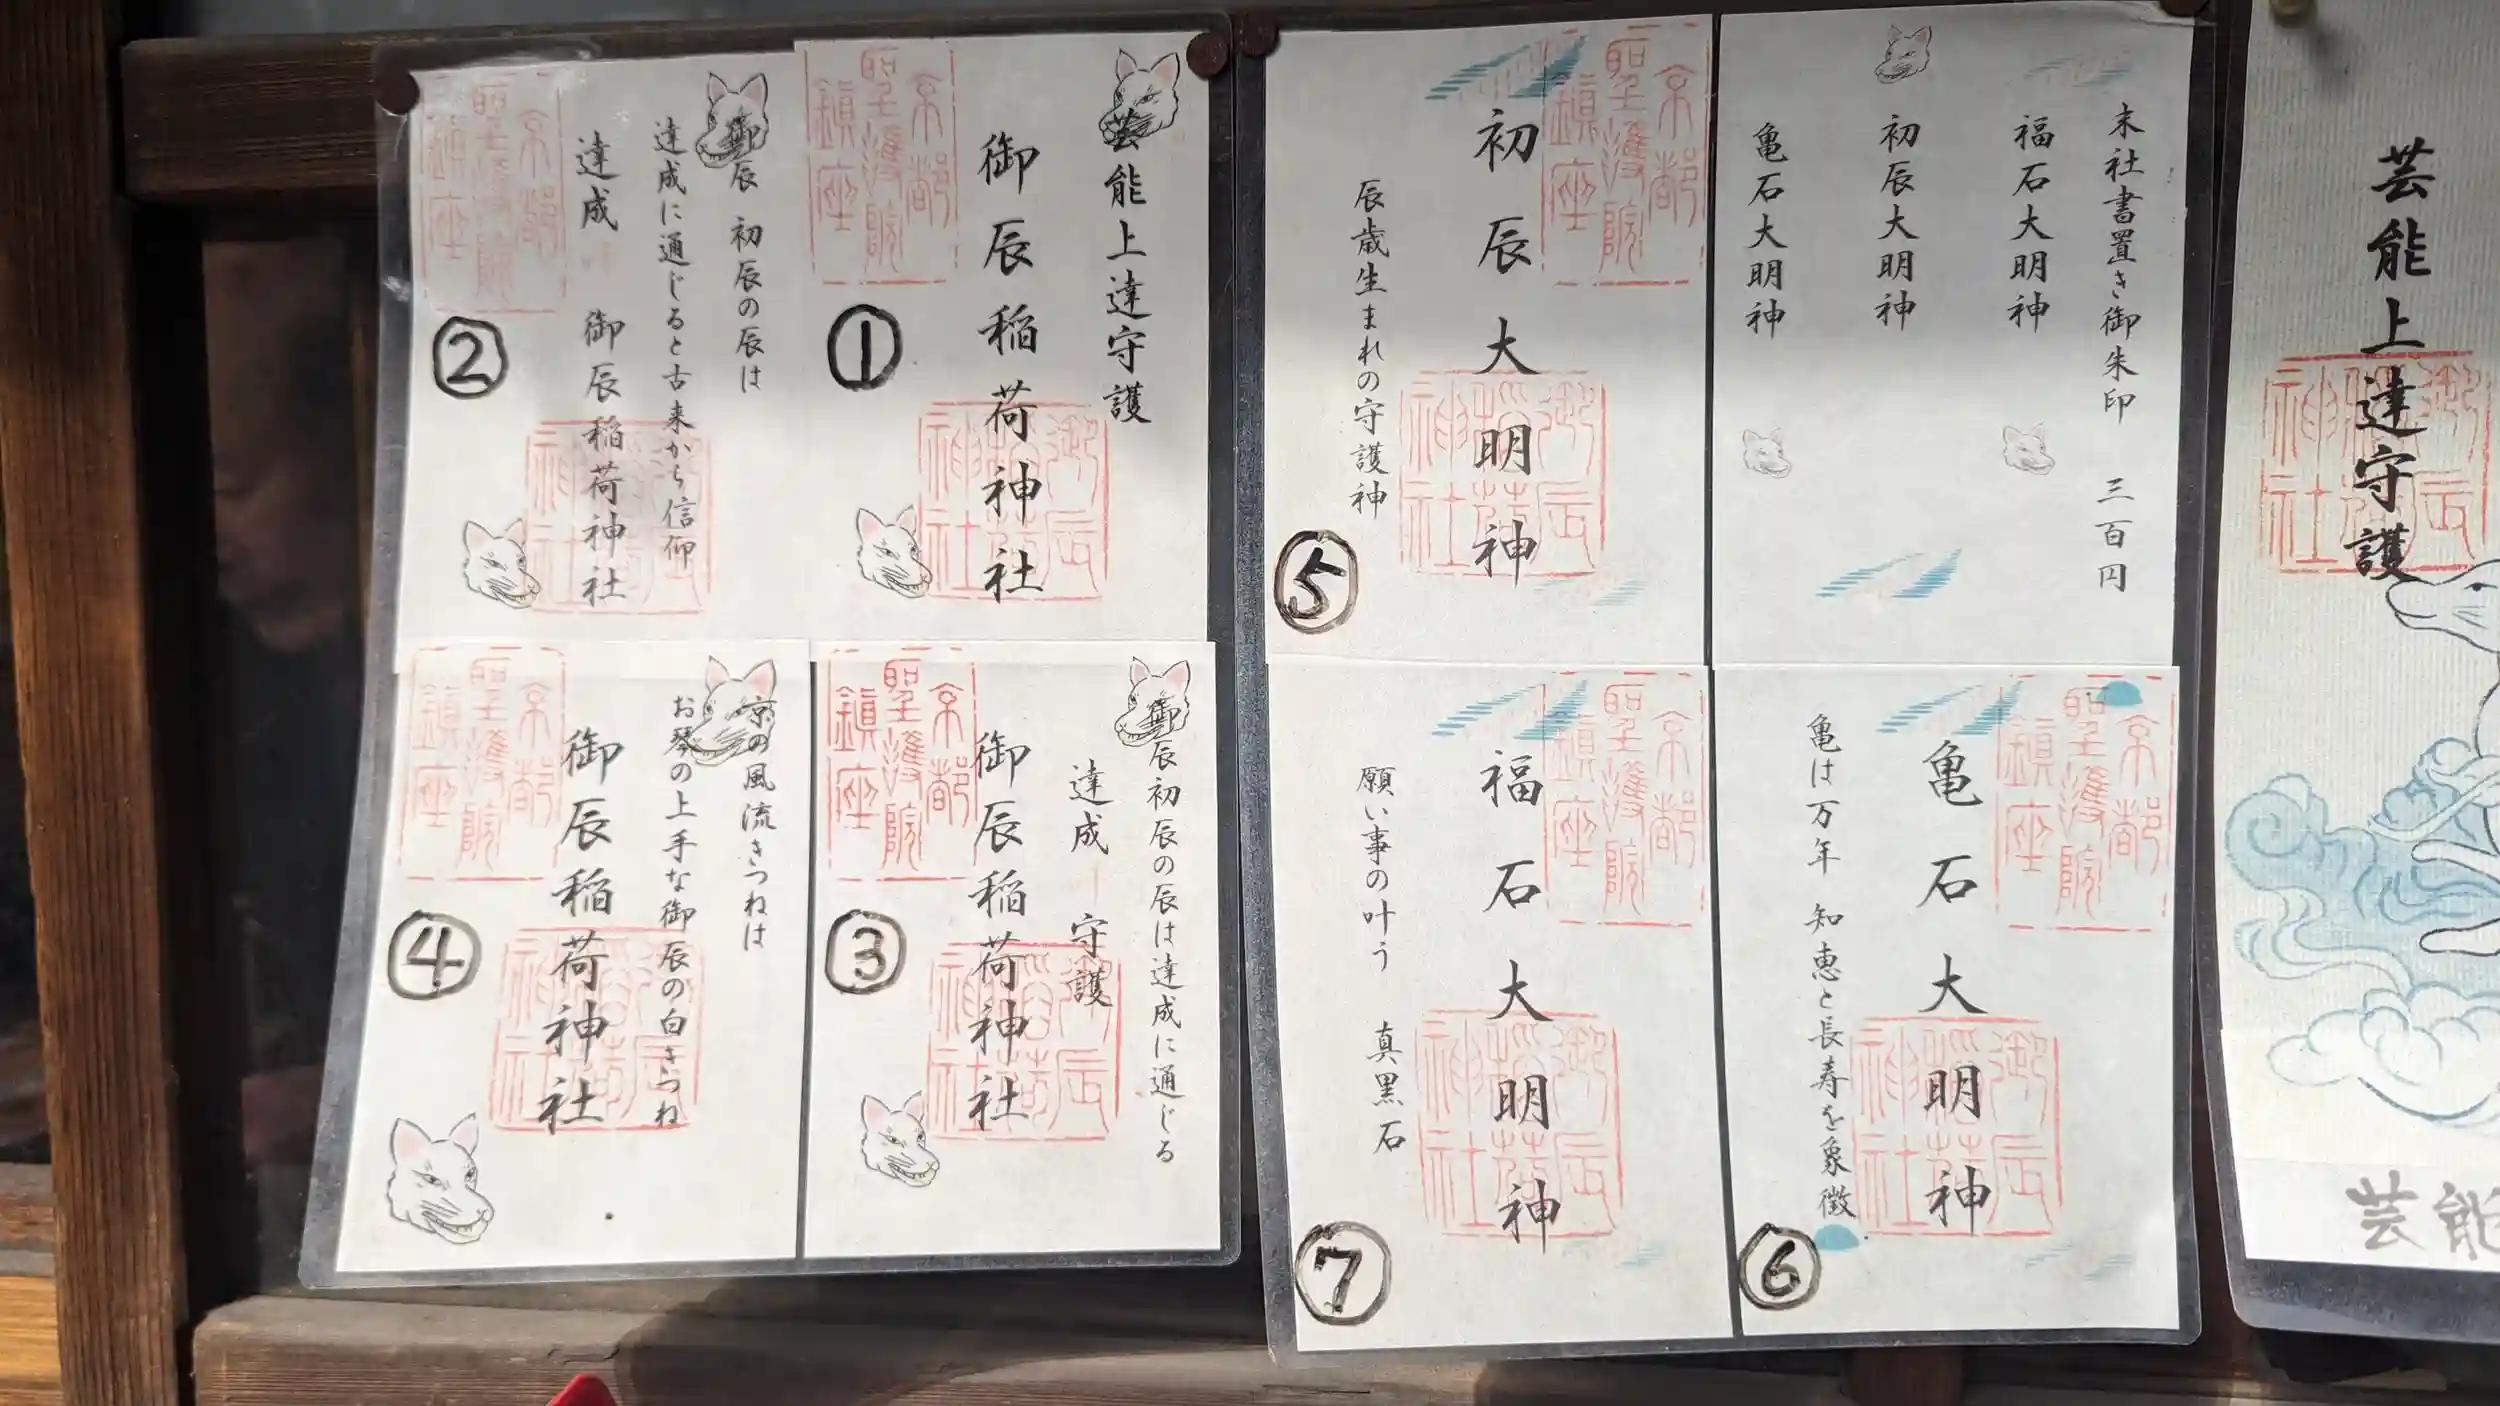 芸能上達守護
御辰稲荷神社
京都
聖護院
鎮座
御辰
稲荷
神社
①
御辰 初辰の辰は
達成に通じると古来から信仰
達成 御辰稲荷神社
京都
聖護院
鎮座
御辰
稲荷
神社
②
御辰初辰の辰は達成に通じる
達成 守護
御辰稲荷神社
京都
聖護院
鎮座
御辰
稲荷
神社
③
京の風流きつねは
お琴の上手な御辰の白きつね
御辰稲荷神社
京都
聖護院
鎮座
御辰
稲荷
神社
④
末社書置き御朱印 三百円
福石大明神
初辰大明神
亀石大明神
京都
聖護院
鎮座
初辰大明神
御辰
稲荷
神社
辰歳生まれの守護神
⑤
京都
聖護院
鎮座
亀石大明神
御辰
稲荷
神社
亀は万年 知恵と長寿を象徴
⑥
京都
聖護院
鎮座
福石大明神
御辰
稲荷
神社
願い事の叶う 真黒石
⑦
芸能上達守護
御辰
稲荷
神社
芸能